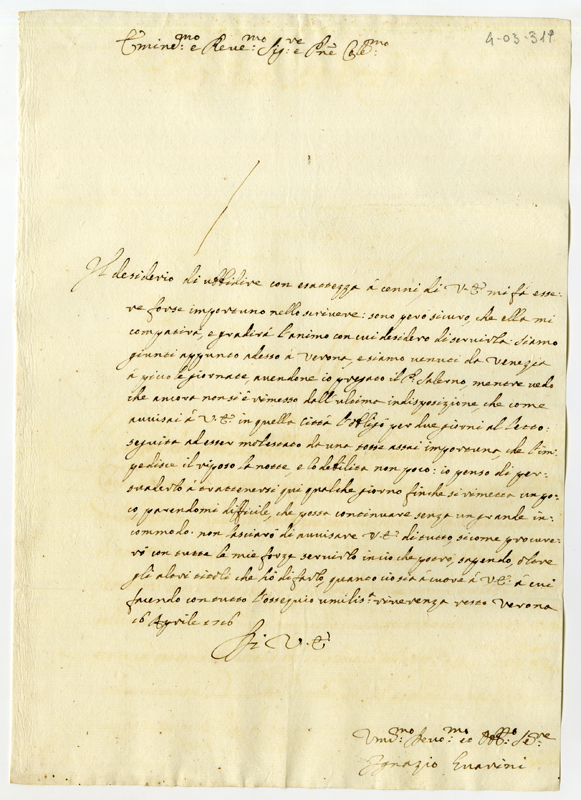 4-03-319
Emind:mo e Reve:mo Sig:re e Pne Col:mo
Il desiderio di ubbidire con esattezza á cenni di V. E. mi fá esse-
re forse importuno nello scrivere: sono peró sicuro, che ella mi
compatirá, e gradirá l'animo con cui desidero di servirla. Siamo
giunti appunto adesso á Verona, e siamo venuti da Venezia
á picole giornate, avendone io pregato il P. Salerno, mentre vedo
che ancora non si é rimesso dall'ultima indisposizione che come
avvisai á V. E. in quella Cittá l'obligó per due giorni al letto:
seguita ad esser molestato da una tosse assai importuna, che l'im-
pedisce il riposo la notte, e lo debilita non poco: io penso di per-
suaderlo á trattenersi qui qualche giorno finché si rimetta un po-
co, parendomi difficile, che possa continuare senza un grande in-
commodo. non lasciaró di avvisare V. E. di tutto si come procure-
ró con tutte le mie forze servirlo in ció che potró, sapendo, oltre
gli altri titoli che hó di farlo, quanto ció sia á cuore á V. E. á cui
facendo con tutto l'ossequio umiliss.a riverenza resto Verona
16 Aprile 1716
Di V. E.
Umil:mo Devo:mo ed Obb:mo Se:re
Ignazio Guarini